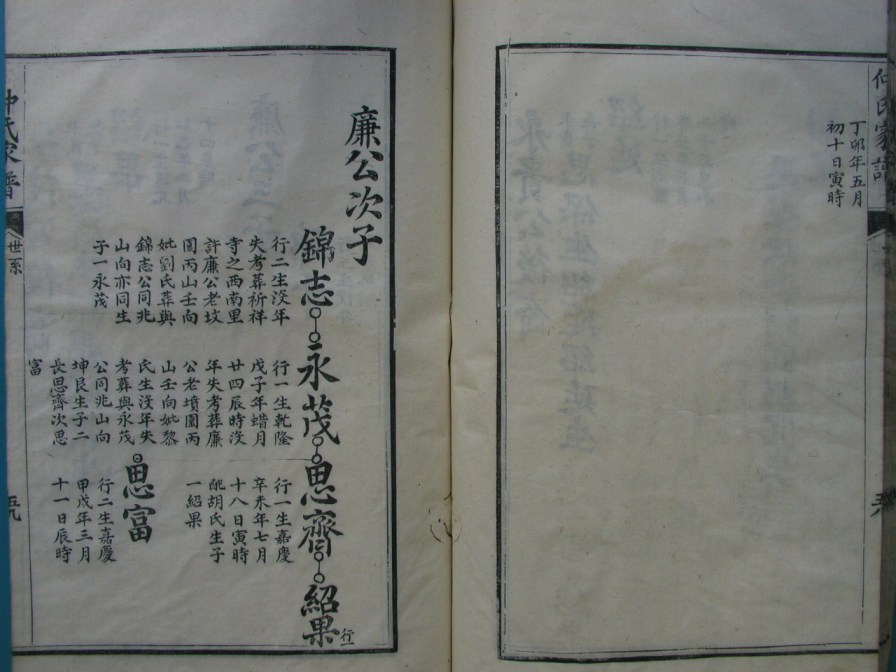 丁卯年五月
初十日寅時
廉公次子
錦志
行二生沒年
失考葬祈祥
寺之西南里
許廉公老坟
圍丙山壬向
妣劉氏葬與
錦志公同兆
山向亦同生
子一永茂
永茂
行一生乾隆
戊子年蜡月
廿四辰時沒
年失考葬廉
公老墳圍丙
山壬向妣黎
氏生沒年失
考葬與永茂
公同兆山向
坤艮生子二
長思齊次思
富
思齊
行一生嘉慶
辛未年七月
十八日寅時
配胡氏生子
一紹果
思富
行二生嘉慶
甲戌年三月
十一日辰時
紹果
行一
世系